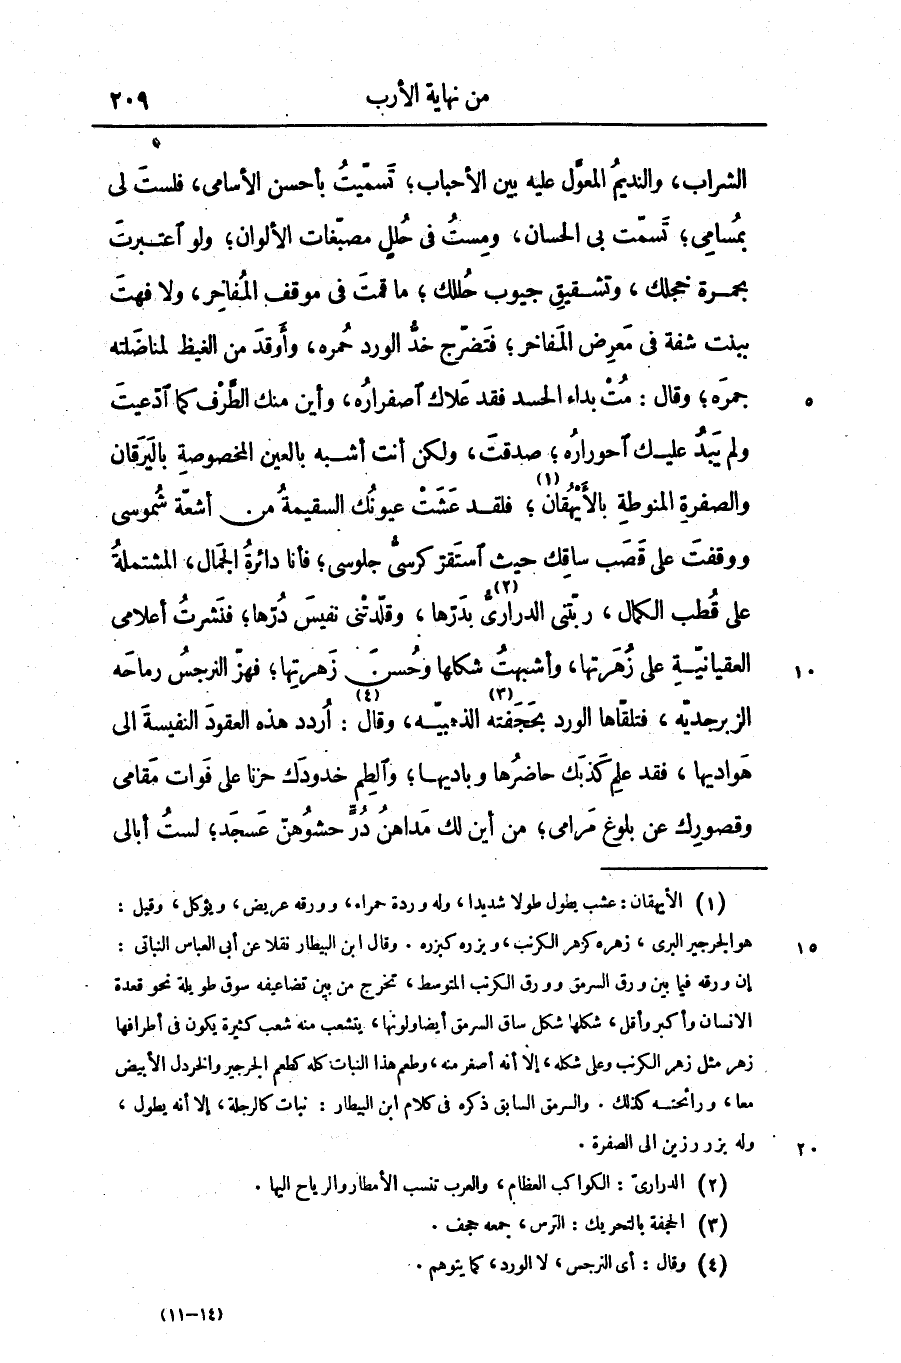 من نهاية الأرب ٢٠٩
الشراب، والنديمُ المعوَّل عليه بين الأحباب؛ تَسمّيتُ بأحسن الأسامى، فلستَ لى
بمُسامِى؛ تَسمّت بى الحسان، ومِستُ فى حُلَلٍ مصبّغات الألوان؛ ولو ٱعتبرتَ
بحمرة خجلك، وتشقيقِ جيوب حُللك؛ ما قمتَ فى موقف المُفاخِر، ولا فهتَ
ببنت شفة فى مَعرِض المَفاخر؛ فتَضرّج خدُّ الورد حُمره، وأَوقدَ من الغيظ لمناضَلته
٥ جمرَه؛ وقال: مُتْ بداء الحسد فقد عَلاك ٱصفرارُه، وأين منك الطَّرْف كما ٱدّعيتَ
ولم يَبْدُ عليك ٱحورارُه؛ صدقتَ، ولكن أنت أشبه بالعين المخصوصة بالَيرَقان
والصفرةِ المنوطة بالأَيْهُقان (١)؛ فلقد عَشَتْ عيونُك السقيمةُ من أشعّة شُموسى
ووقفتَ على قَصَب ساقِك حيث ٱستَقرّ كرسىُّ جلوسى؛ فأنا دائرةُ الجَمال، المشتملةُ
على قُطب الكمال، ربّتنى الدرارىُّ (٢) بدَرّها، وقلّدتْنى نفيسَ دُرّها؛ فنَشرتُ أعلامى
١٠ العقيانيّةِ على زُهَرتها، وأشبهتُ شكلها وحُسنَ زَهرتِها؛ فهزّ النرجسُ رماحَه
الزبرجديّه، فتلقّاها الورد بحَجَفته (٣) الذهبيّه، وقال (٤): أُردد هذه العقودَ النفيسةَ الى
هَواديها، فقد علِم كَذبَك حاضرُها وباديها؛ وٱلطِم خدودَك حزنا على فَوات مَقامى
وقصورِك عن بلوغ مَرامى؛ من أين لك مَداهنُ دُرٍّ حشوُهنّ عَسجَد؛ لستُ أبالى
(١) الأيهقان: عشب يطول طولا شديدا، وله وردة حمراء، وورقه عريض، ويؤكل، وقيل:
١٥ هو الجرجير البرى، زهره كزهر الكرنب، وبزره كبزره. وقال ابن البيطار نقلا عن أبى العباس النباتى:
إن ورقه فيا بين ورق السرمق وورق الكرنب المتوسط، تخرج من بين تضاعيفه سوق طويلة نحو قعدة
الانسان وأكبر وأقل، شكلها شكل ساق السرمق أيضا ولونها، يتشعب منه شعب كثيرة يكون فى أطرافها
زهر مثل زهر الكرنب وعلى شكله، إلا أنه أصغر منه، وطعم هذا النبات كله كطعم الجرجير والخردل الأبيض
معا، ورائحته كذلك. والسرمق السابق ذكره فى كلام ابن البيطار: نبات كالرجلة، إلا أنه يطول،
٢٠ وله بزر رزين الى الصفرة.
(٢) الدرارىّ: الكواكب العظام، والعرب تنسب الأمطار والرياح اليها.
(٣) الحجفة بالتحريك: الترس، جمعه حجف.
(٤) وقال: أى النرجس، لا الورد، كما يتوهم.
(١٤-١١)